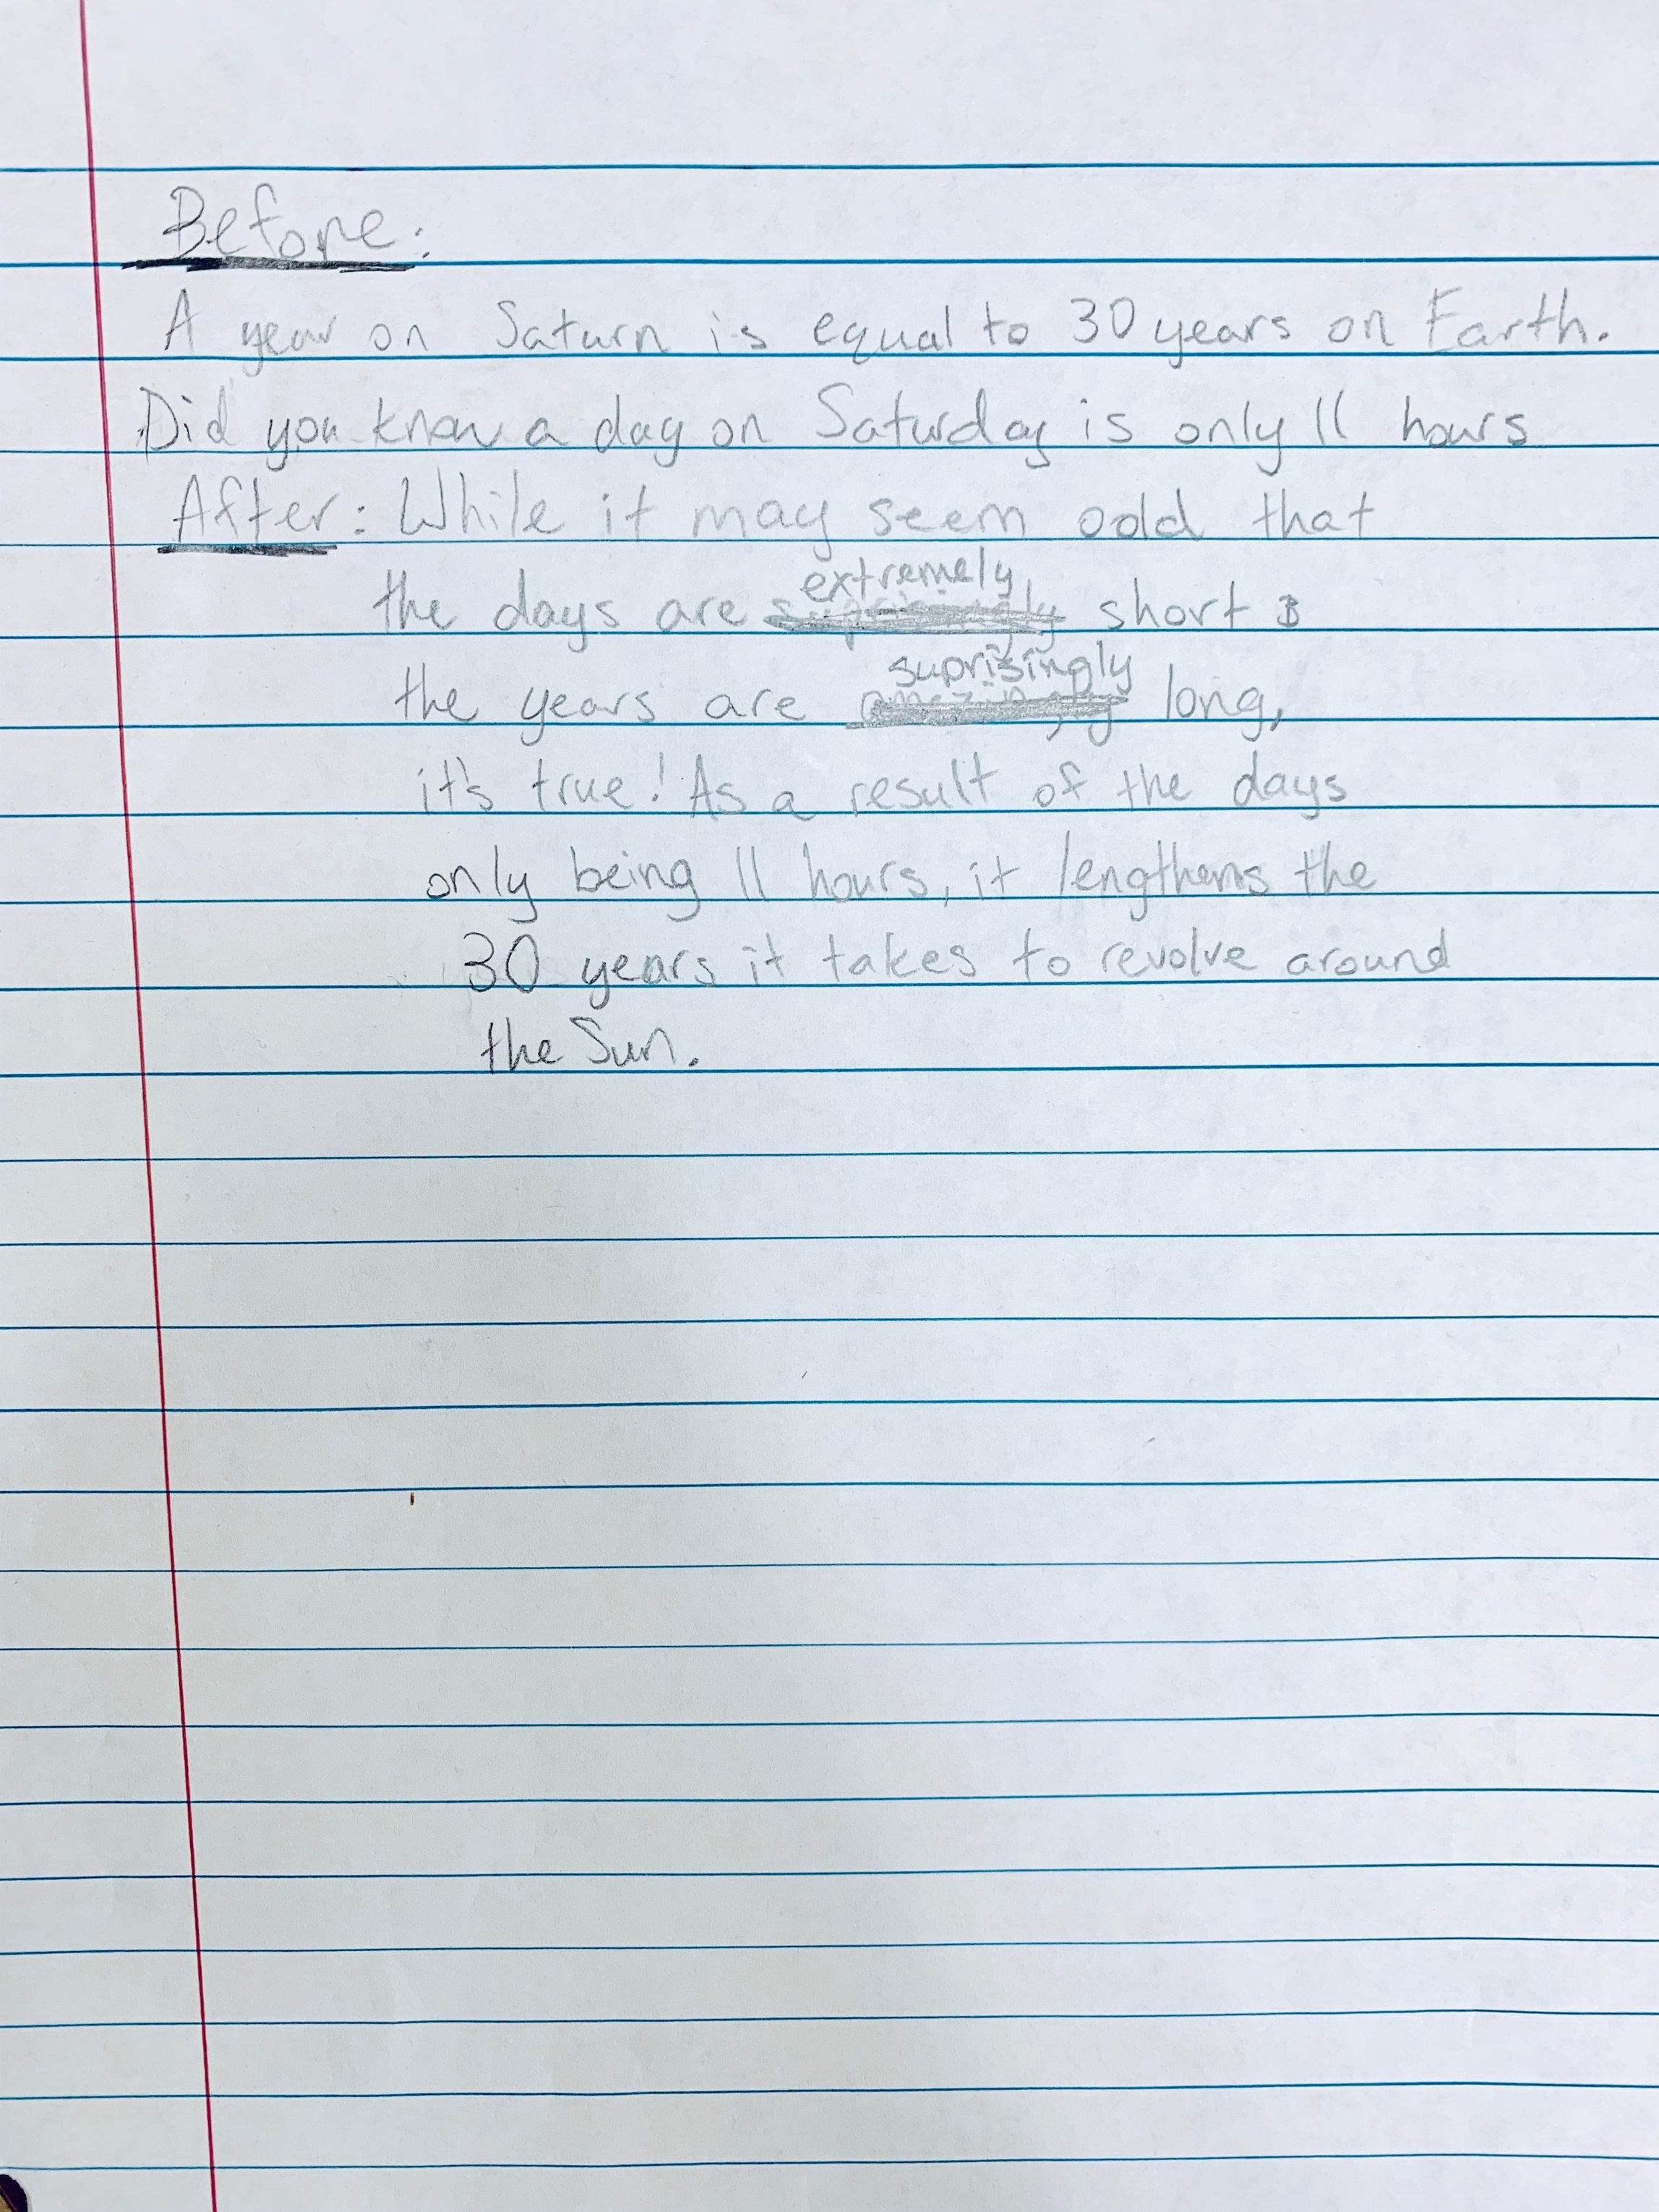 Before:
A year on Saturn is equal to 30 years on Earth.
Did you know a day on Saturday is only 11 hours
After: While it may seem odd that
the days are extremely short &
the years are suprisingly long,
it's true! As a result of the days
only being 11 hours, it lengthens the
30 years it takes to revolve around
the Sun.